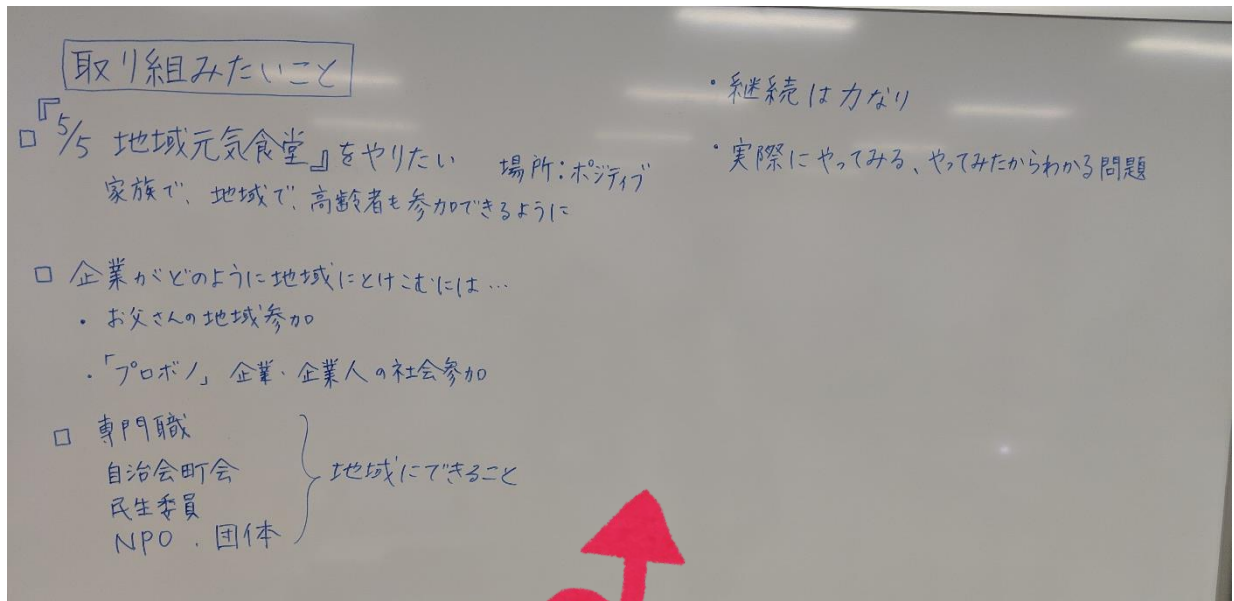 取り組みたいこと
□ 『5/5 地域元気食堂』をやりたい 場所：ポジティブ
家族で、地域で、高齢者も参加できるように
□ 企業がどのように地域にとけこむには…
・お父さんの地域参加
・「プロボノ」企業・企業人の社会参加
□ 専門職
自治会町会
民生委員
NPO・団体
地域にできること
・継続は力なり
・実際にやってみる、やってみたからわかる問題